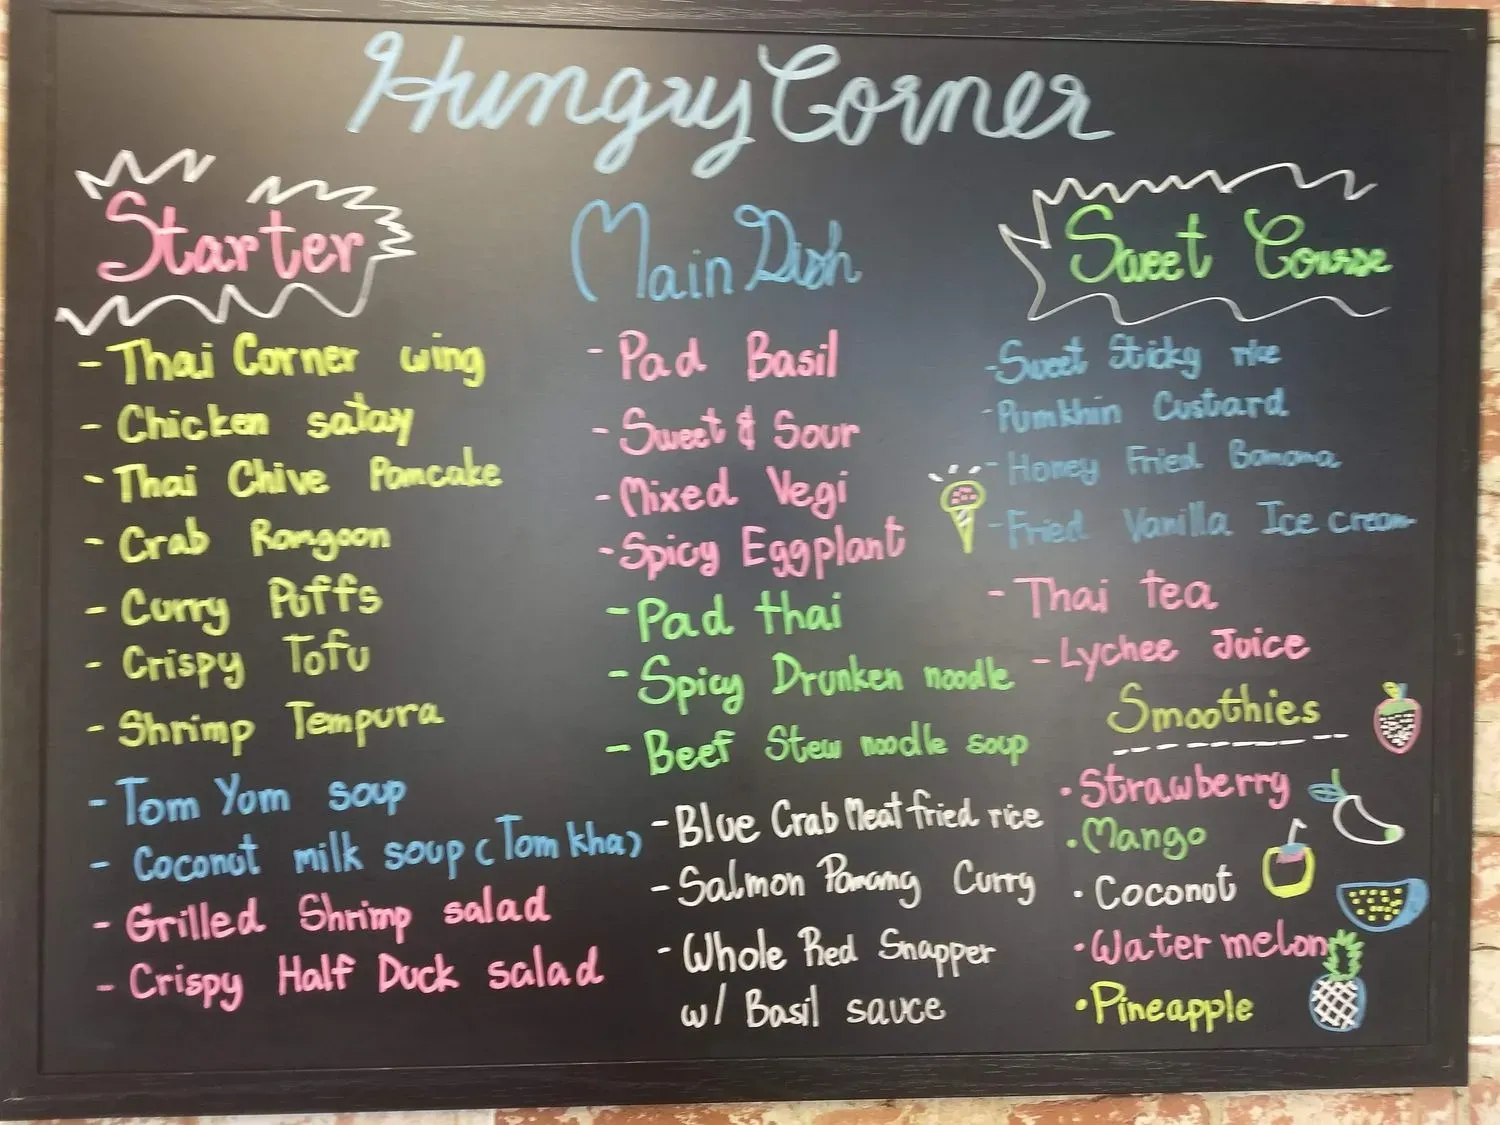 Hungry Corner
Starter
- Thai Corner wing
- Chicken satay
- Thai Chive Pancake
- Crab Rangoon
- Curry Puffs
- Crispy Tofu
- Shrimp Tempura
- Tom Yum soup
- Coconut milk soup (Tom kha)
- Grilled Shrimp salad
- Crispy Half Duck salad
Main Dish
- Pad Basil
- Sweet & Sour
- Mixed Vegi
- Spicy Eggplant
- Pad thai
- Spicy Drunken noodle
- Beef Stew noodle soup
- Blue Crab Meat fried rice
- Salmon Panang Curry
- Whole Red Snapper
w/ Basil sauce
Sweet Course
- Sweet Sticky rice
- Pumkhin Custard
- Honey Fried Banana
- Fried Vanilla Ice cream
- Thai tea
- Lychee Juice
Smoothies
• Strawberry
• Mango
• Coconut
• Watermelon
• Pineapple